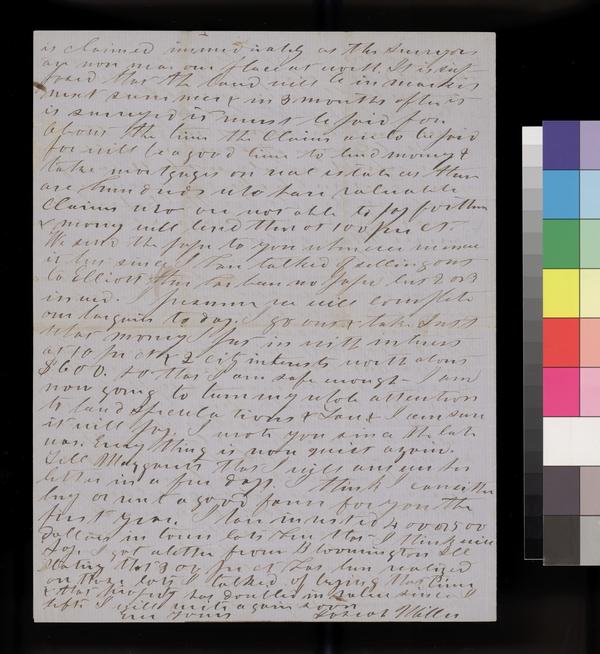 is claimed immediately as the surveyors
are now near our place at work. It is sup
posed that the land will be in market
next summer & in 3 months after it
is surveyed it must be paid for.
About the time the claims are to be paid
for will be a good time to lend money &
take mortgages on real estate as there
are hundreds who have valuable
claims who are not able to pay for them
& money will lend then at 100 pr ct.
We send the paper to you whenever issued
is but since I have talked of selling out
to Elliott there has been no paper but 2 or 3
issued. I presume we will complete
our bargain to day. I go out & take Just
what money I put in with interest
at 10 pr ct & 2 city interests worth about
$600. so that I am safe enough - I am
now going to turn my whole attention
to land speculations & Law & I am sure
it will pay. I wrote you since the late
war. Every thing is now quiet again.
Tell Margaret that I will answer her
letter in a few days. I think I can either
buy or rent a good farm for you the
first year. I have invested 4 00 or 500
dollars in town lots here that I think will
pay. I got a letter from Bloomington Ill
stating that 30 pr ct has been realized
on those lots I talked of buying that time
& that property has doubled in value since I
left. I will write again soon
Ever yours Josiah Miller